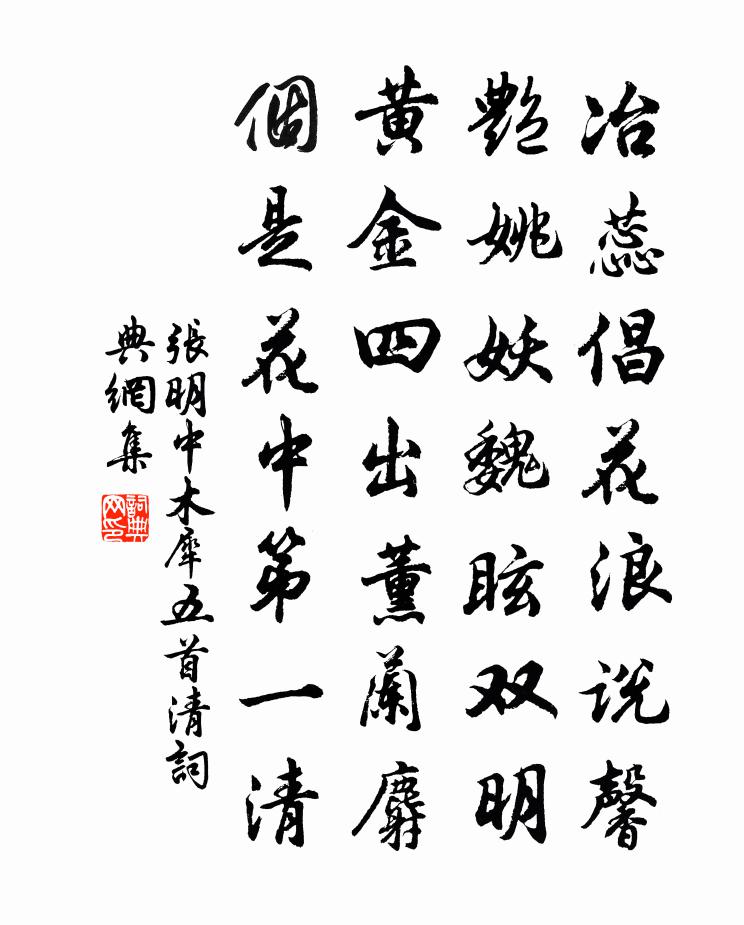 冶蕊倡花浪说馨
艷姚妖魏眩双明
黄金四出薰蘭麝
個是花中第一清
張明中木犀五首清詞
典網集
詞典
网印